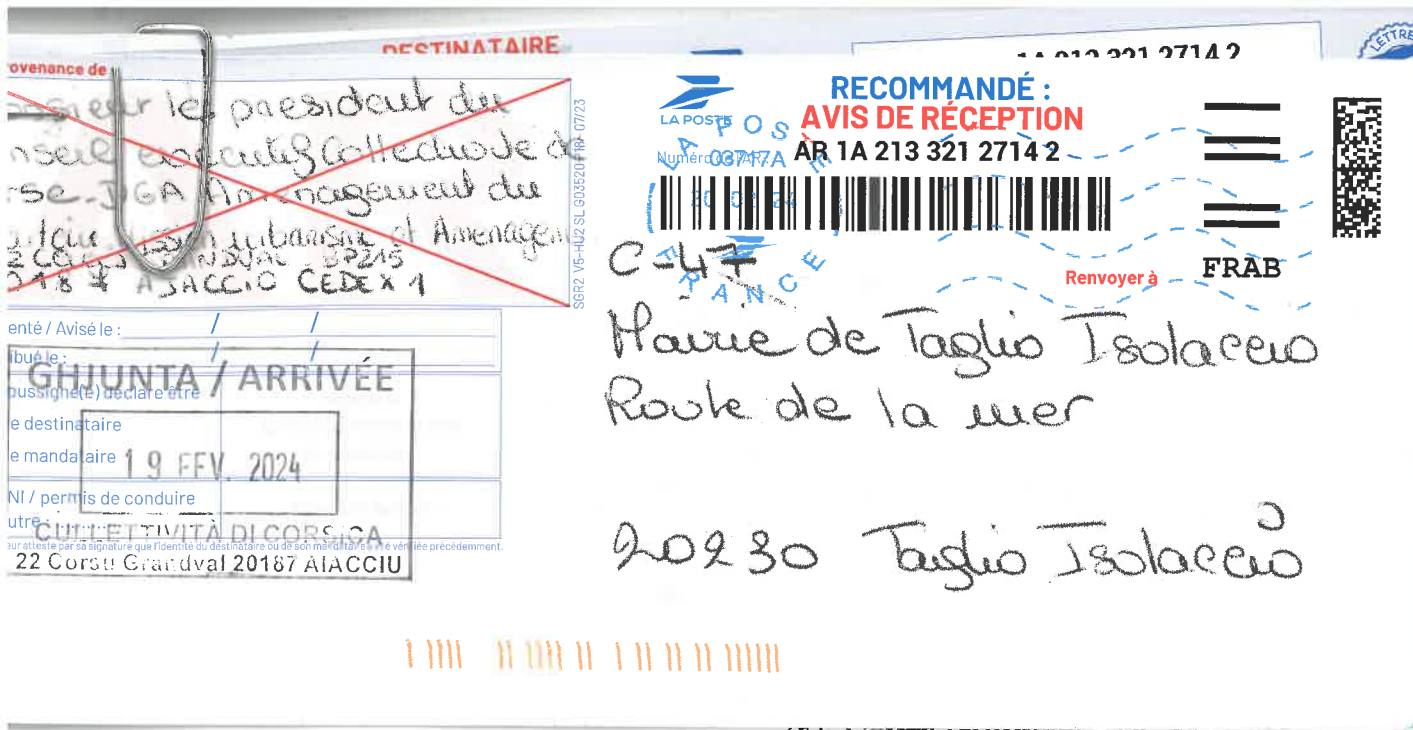 DESTINATAIRE
1A 213 321 2714 2
LETTRE
ovenance de
le président du
nseil exécutif Collectivité de
rse. DGA Aménagement du
urbanisme et Amenagem
GRANDVAL BP215
20187 AJACCIO CEDEX 1
SGR2 V5-HU2 SL G03520 07/23
enté / Avisé le : / /
ibué le : / /
oussigné(e) déclare être
e destinataire
e mandataire
NI / permis de conduire
utre :
eur atteste par sa signature que l'identité du destinataire ou de son mandataire a été vérifiée précédemment.
GHJUNTA / ARRIVÉE
19 FEV. 2024
CULLETTIVITÀ DI CORSICA
22 Corsu Grandval 20187 AIACCIU
LA POSTE
RECOMMANDÉ :
AVIS DE RÉCEPTION
Numéro de l'AR :
AR 1A 213 321 2714 2
LA POSTE
03717A
FRANCE
Renvoyer à
FRAB
C-47
Mairie de Taglio Isolaccio
Route de la mer
20230 Taglio Isolaccio